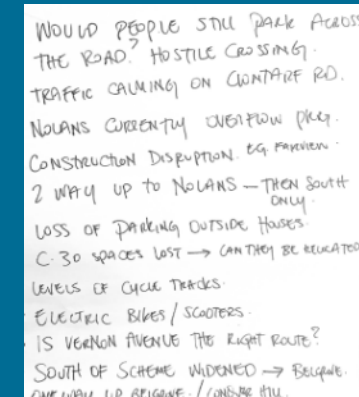 WOULD PEOPLE STILL PARK ACROSS
THE ROAD? HOSTILE CROSSING.
TRAFFIC CALMING ON CLONTARF RD.
NOLANS CURRENTLY OVERFLOW PKG.
CONSTRUCTION DISRUPTION. EG. FAIRVIEW.
2 WAY UP TO NOLANS – THEN SOUTH
ONLY.
LOSS OF PARKING OUTSIDE HOUSES.
C. 30 SPACES LOST → CAN THEY BE RELOCATED
LEVELS OF CYCLE TRACKS.
ELECTRIC BIKES / SCOOTERS.
IS VERNON AVENUE THE RIGHT ROUTE?
SOUTH OF SCHEME WIDENED → BELGROVE.
ONE WAY UP BELGROVE. /